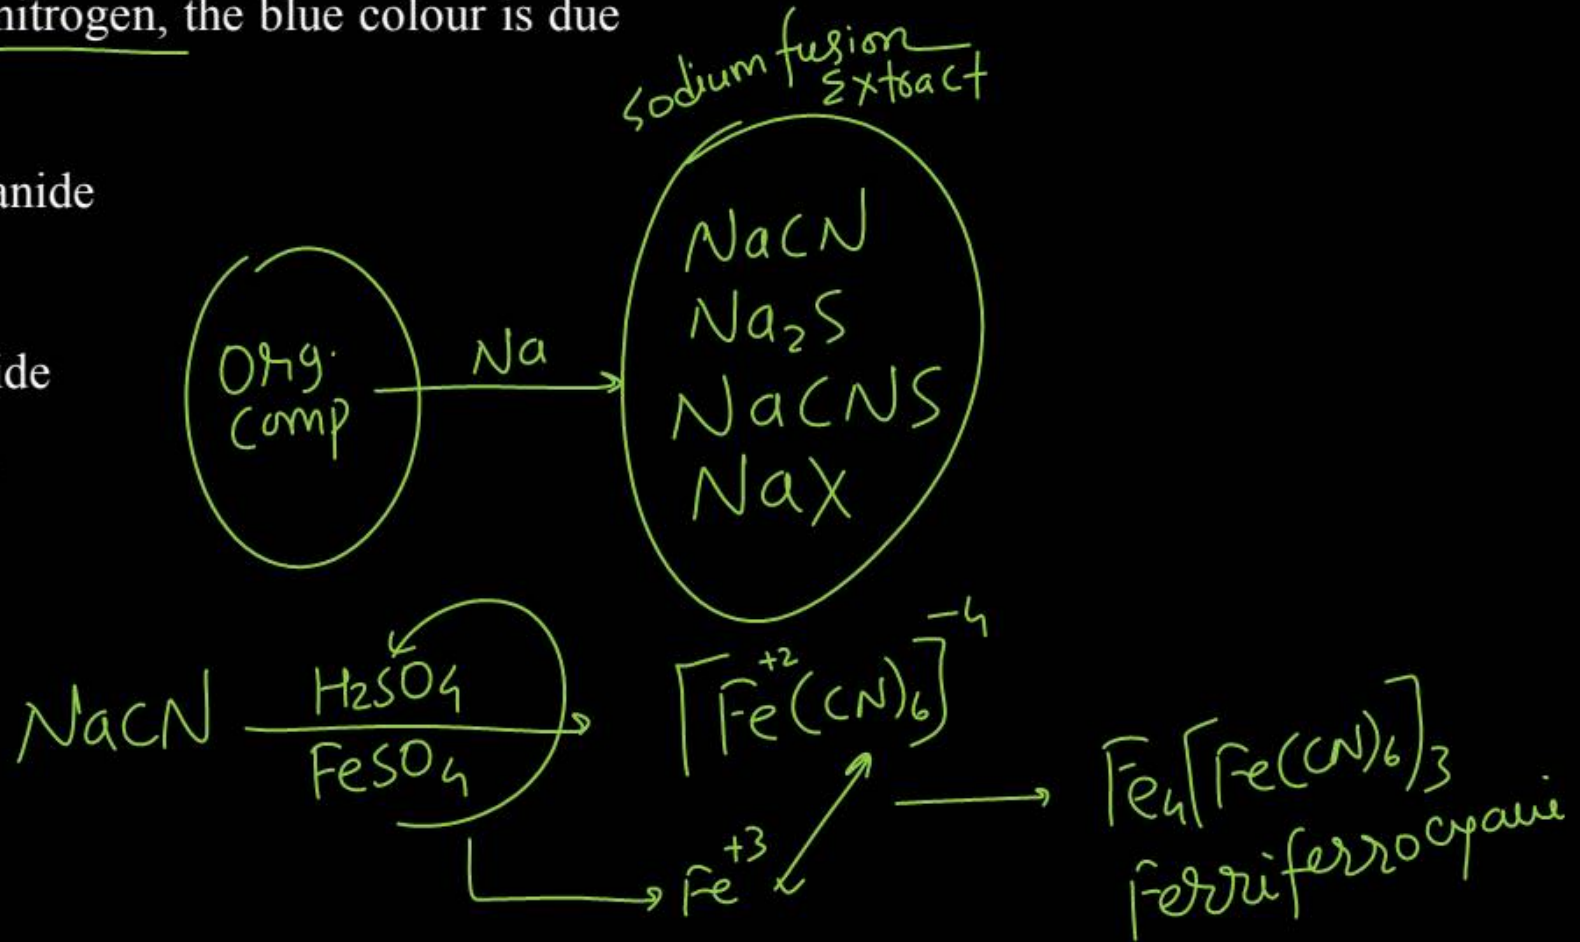 nitrogen, the blue colour is due
sodium fusion
Extract
anide
ide
Org.
Comp
Na
NaCN
Na₂S
NaCNS
NaX
NaCN
H₂SO₄
FeSO₄
[Fe⁺²(CN)₆]⁻⁴
Fe⁺³
Fe₄[Fe(CN)₆]₃
Ferriferrocyanide